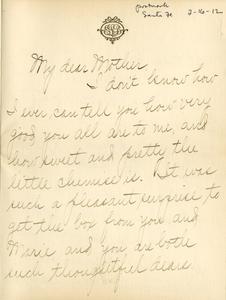 postmark
Santa Fe
2-16-12
My dear Mother
I don't know how
I ever can tell you how very
good you all are to me, and
how sweet and pretty the
little chemise is. It was
such a pleasant surprise to
get the box from you and
Marie and you are both
such thoughtful dears.